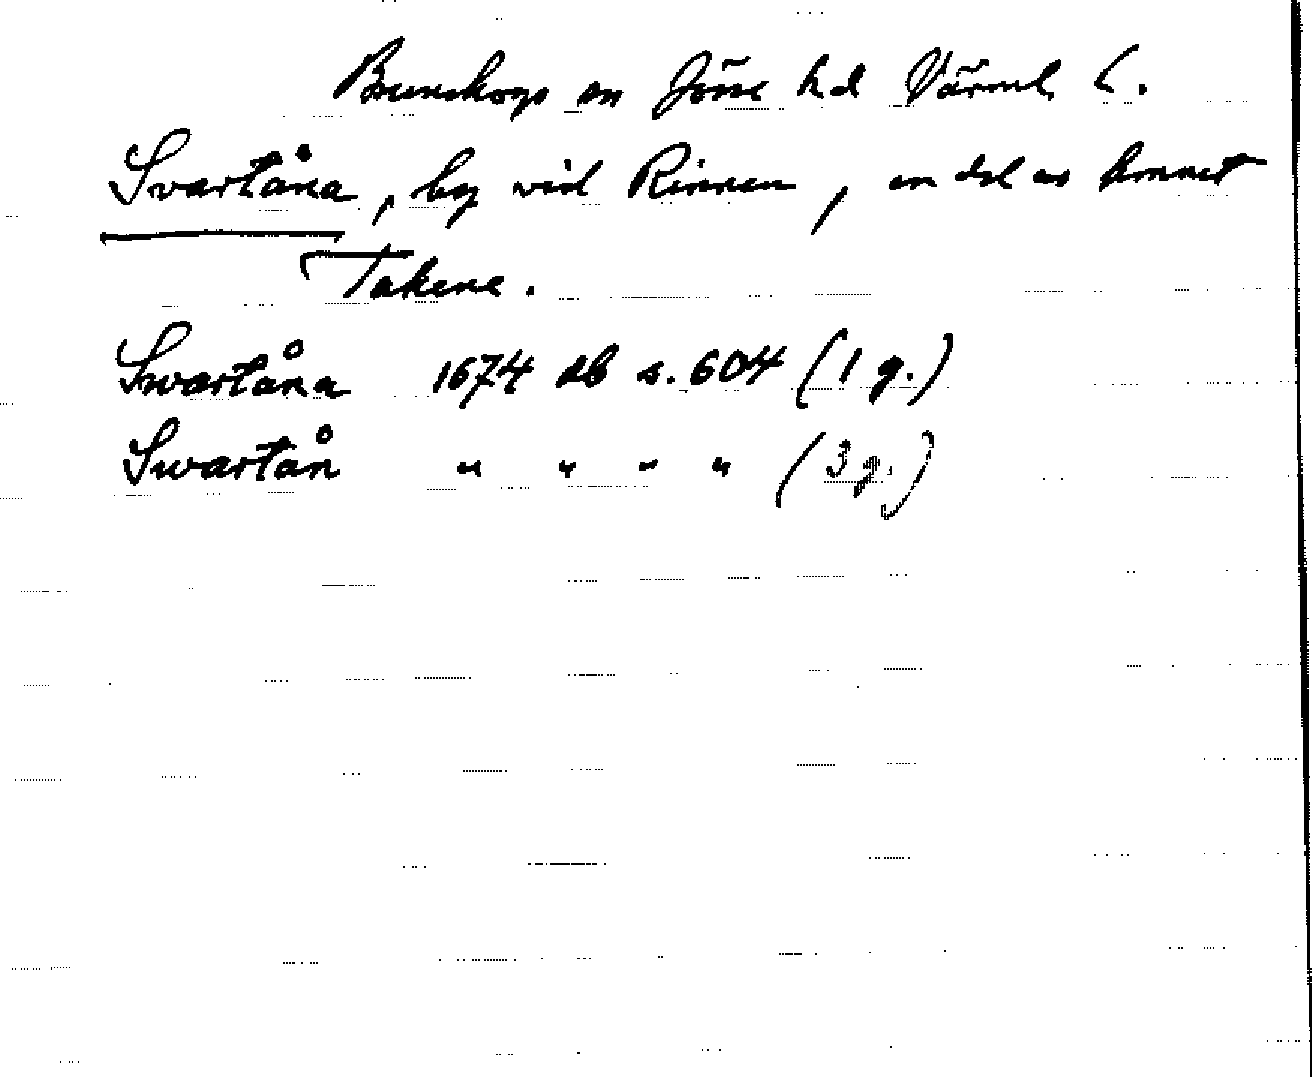 Brunskogs sn Jösse hd Värml l.
Svartåna, by vid Rinnen, en del av hemmet
Takene.
Swartåna 1674 db s. 604 (1 g.)
Swartån " " " " (3 g.)